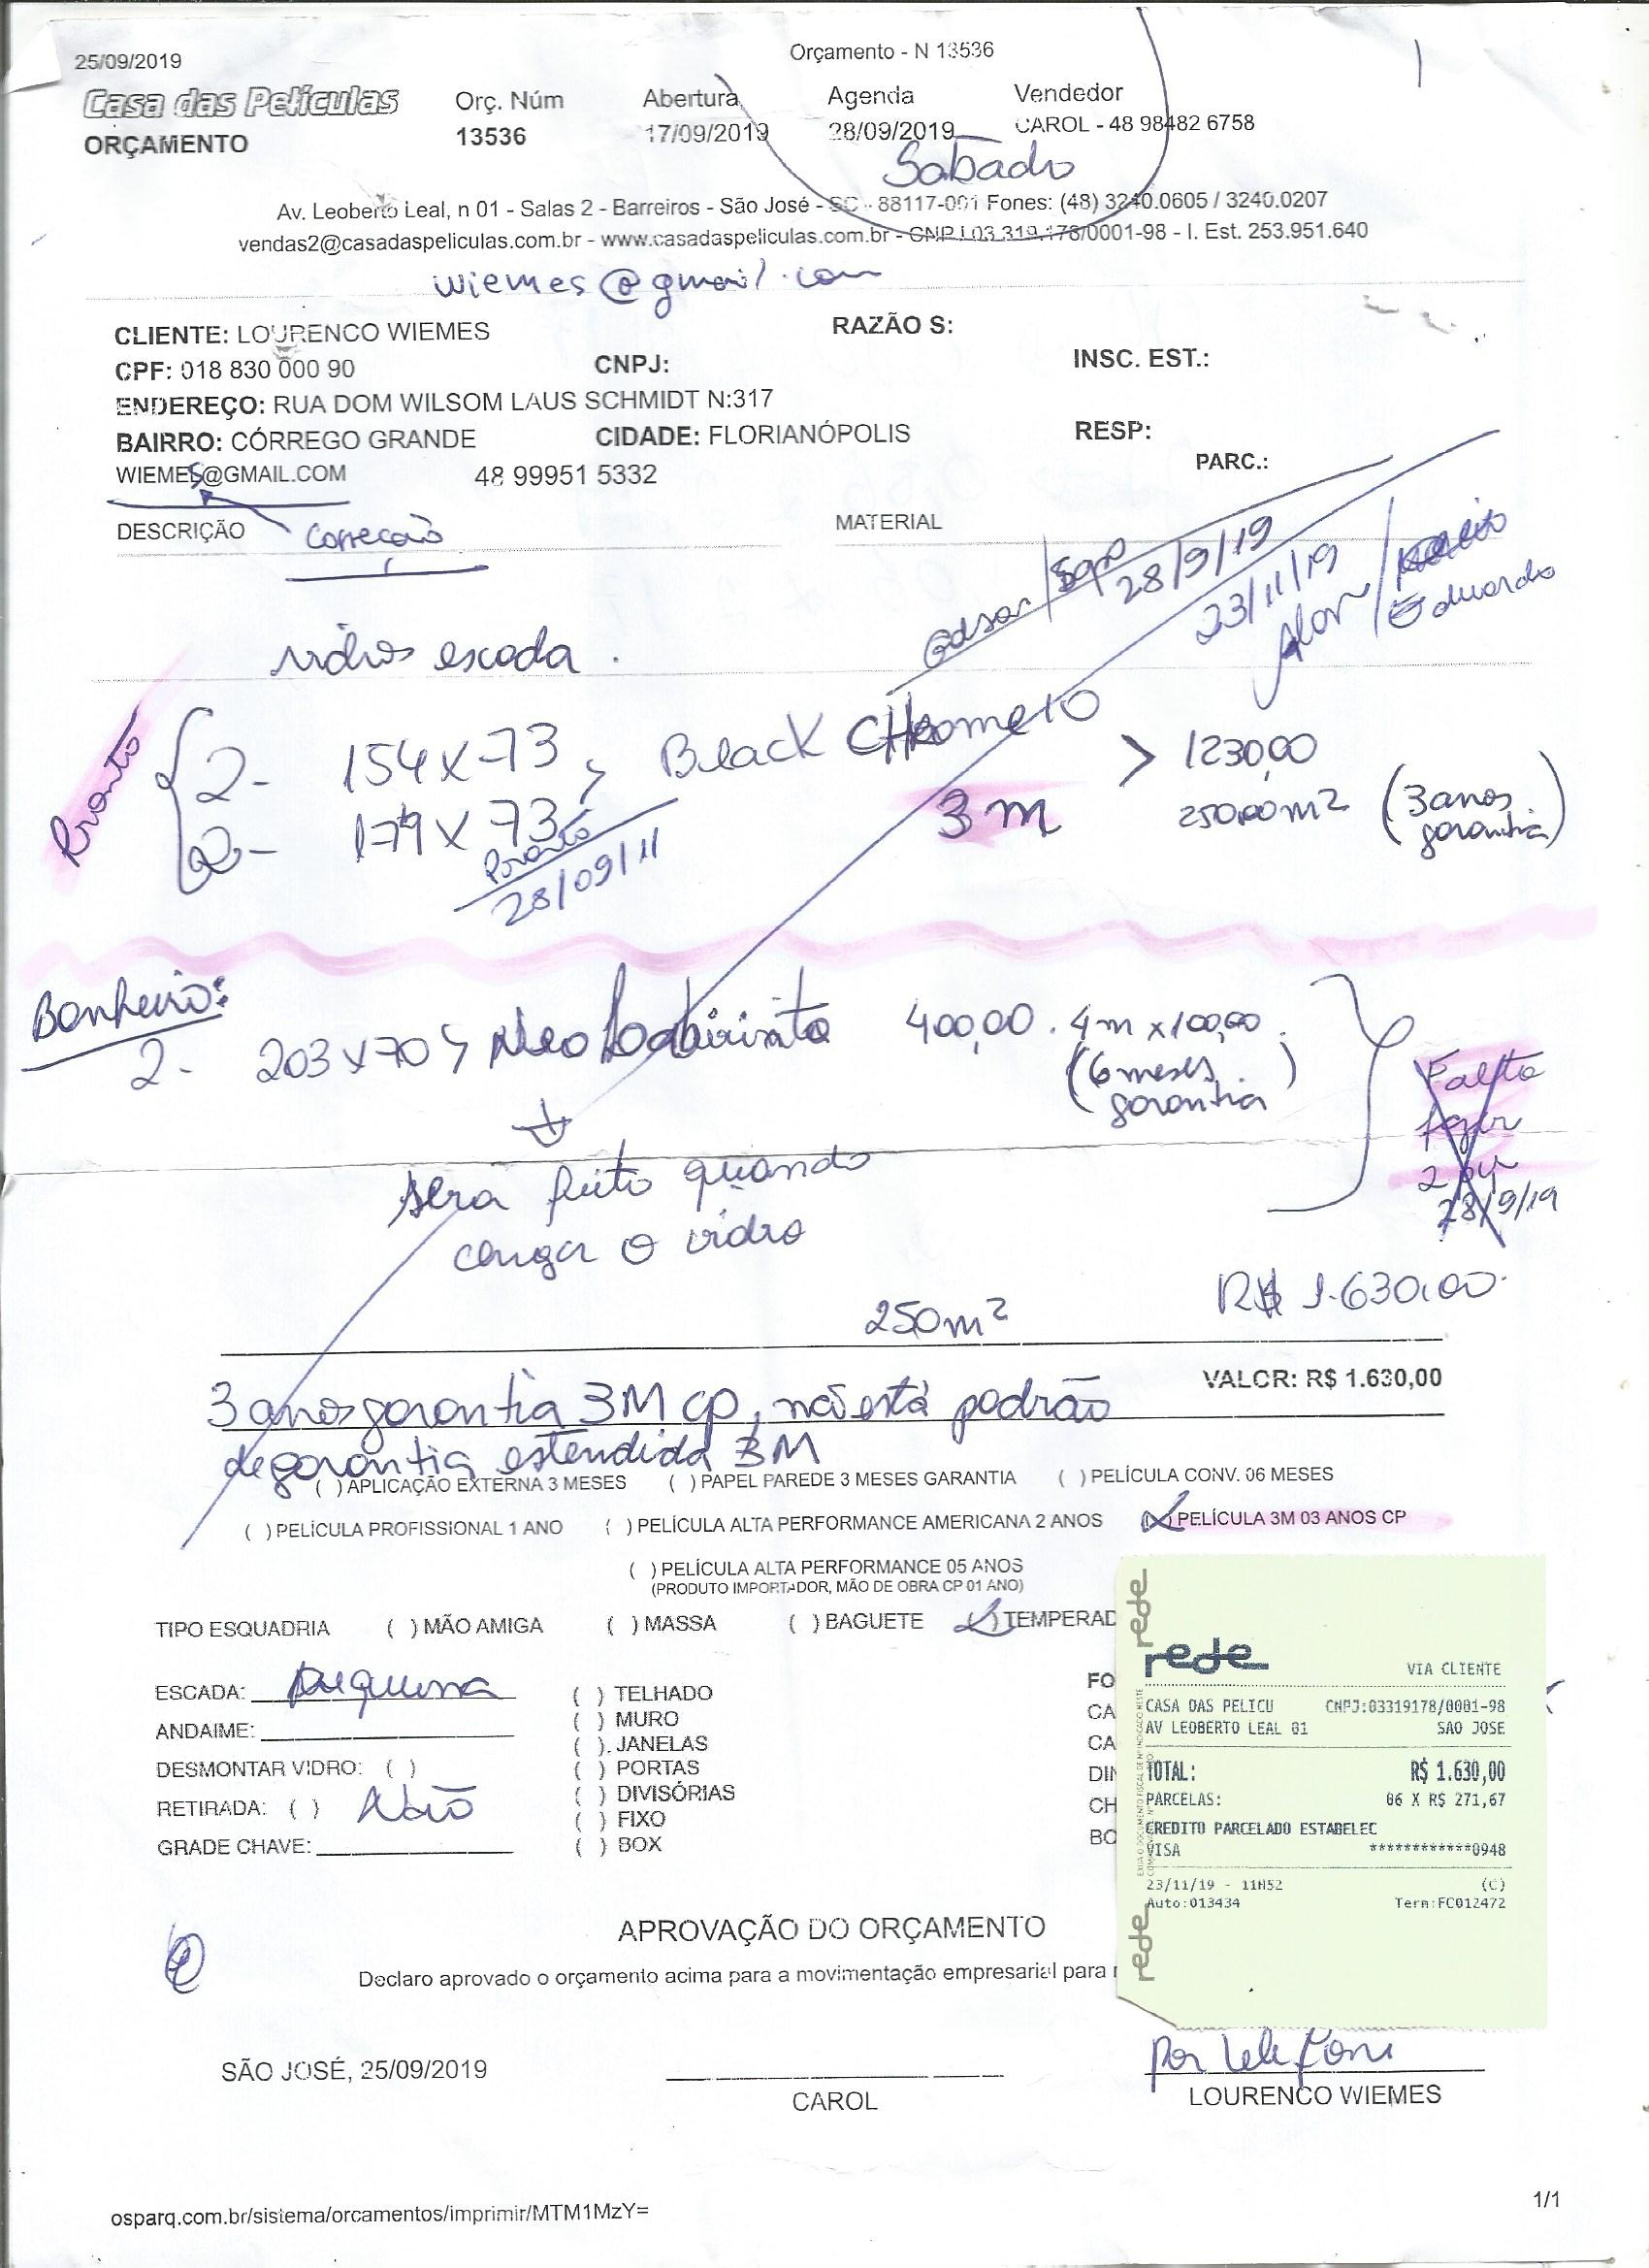 25/09/2019
Orçamento - N 13536
Casa das Películas
ORÇAMENTO
Orç. Núm
13536
Abertura
17/09/2019
Agenda
28/09/2019
Sabado
Vendedor
CAROL - 48 98482 6758
Av. Leoberto Leal, n 01 - Salas 2 - Barreiros - São José - SC - 88117-001 Fones: (48) 3240.0605 / 3240.0207
vendas2@casadaspeliculas.com.br - www.casadaspeliculas.com.br - CNPJ 03.319.178/0001-98 - I. Est. 253.951.640
wiemes@gmail.com
CLIENTE: LOURENCO WIEMES
RAZÃO S:
CPF: 018 830 000 90
CNPJ:
INSC. EST.:
ENDEREÇO: RUA DOM WILSOM LAUS SCHMIDT N:317
BAIRRO: CÓRREGO GRANDE
CIDADE: FLORIANÓPOLIS
RESP:
PARC.:
WIEMES@GMAIL.COM
48 99951 5332
DESCRIÇÃO
correção
MATERIAL
28/9/19
23/11/19
Eduardo
vidros escada.
Pronto
2- 154x73
2- 179x73
Black CHrometo
3m
> 1230,00
250,00m2 (3 anos garantia)
Pronto
28/09/11
Banheiro:
2- 203x70 > Neo Labirinto 400,00. 4m x100,00.
(6 meses garantia)
Falta
2
28/9/19
sera feito quando
o vidro
250m2
R$ 1.630,00
VALOR: R$ 1.630,00
3 anos garantia 3M cp, não está padrão
de garantia estendida 3M
( ) APLICAÇÃO EXTERNA 3 MESES ( ) PAPEL PAREDE 3 MESES GARANTIA ( ) PELÍCULA CONV. 06 MESES
( ) PELÍCULA PROFISSIONAL 1 ANO ( ) PELÍCULA ALTA PERFORMANCE AMERICANA 2 ANOS ( ) PELÍCULA 3M 03 ANOS CP
( ) PELÍCULA ALTA PERFORMANCE 05 ANOS
(PRODUTO IMPORTADOR, MÃO DE OBRA CP 01 ANO)
TIPO ESQUADRIA ( ) MÃO AMIGA ( ) MASSA ( ) BAGUETE ( ) TEMPERAD
ESCADA: pequena
ANDAIME:
DESMONTAR VIDRO: ( )
RETIRADA: ( ) Não
GRADE CHAVE:
( ) TELHADO
( ) MURO
( ) JANELAS
( ) PORTAS
( ) DIVISÓRIAS
( ) FIXO
( ) BOX
FO
CA
CA
DIN
CH
BO
rede
rede
VIA CLIENTE
CASA DAS PELICU CNPJ:03319178/0001-98
AV LEOBERTO LEAL 01 SAO JOSE
TOTAL: R$ 1.630,00
PARCELAS: 06 X R$ 271,67
CREDITO PARCELADO ESTABELEC
VISA ************0948
23/11/19 - 11H52 (C)
Auto:013434 Term:FC012472
rede
APROVAÇÃO DO ORÇAMENTO
Declaro aprovado o orçamento acima para a movimentação empresarial para
SÃO JOSÉ, 25/09/2019
CAROL
Por telefone
LOURENCO WIEMES
osparq.com.br/sistema/orcamentos/imprimir/MTM1MzY=
1/1